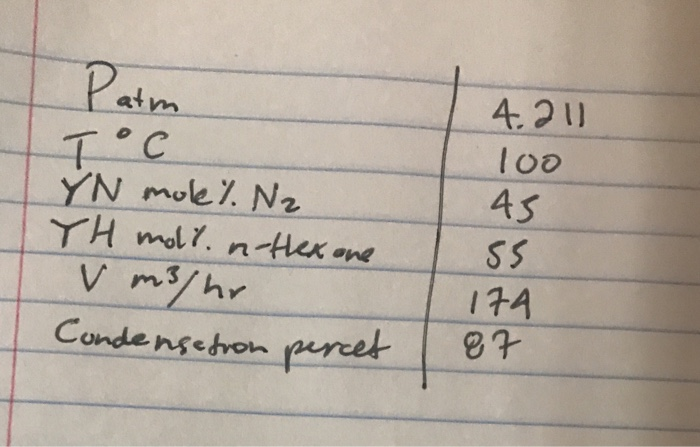 Patm 4.211
T °C 100
YN mole %. N2 45
YH mol %. n-Hexane 55
V m³/hr 174
Condensation percet 87